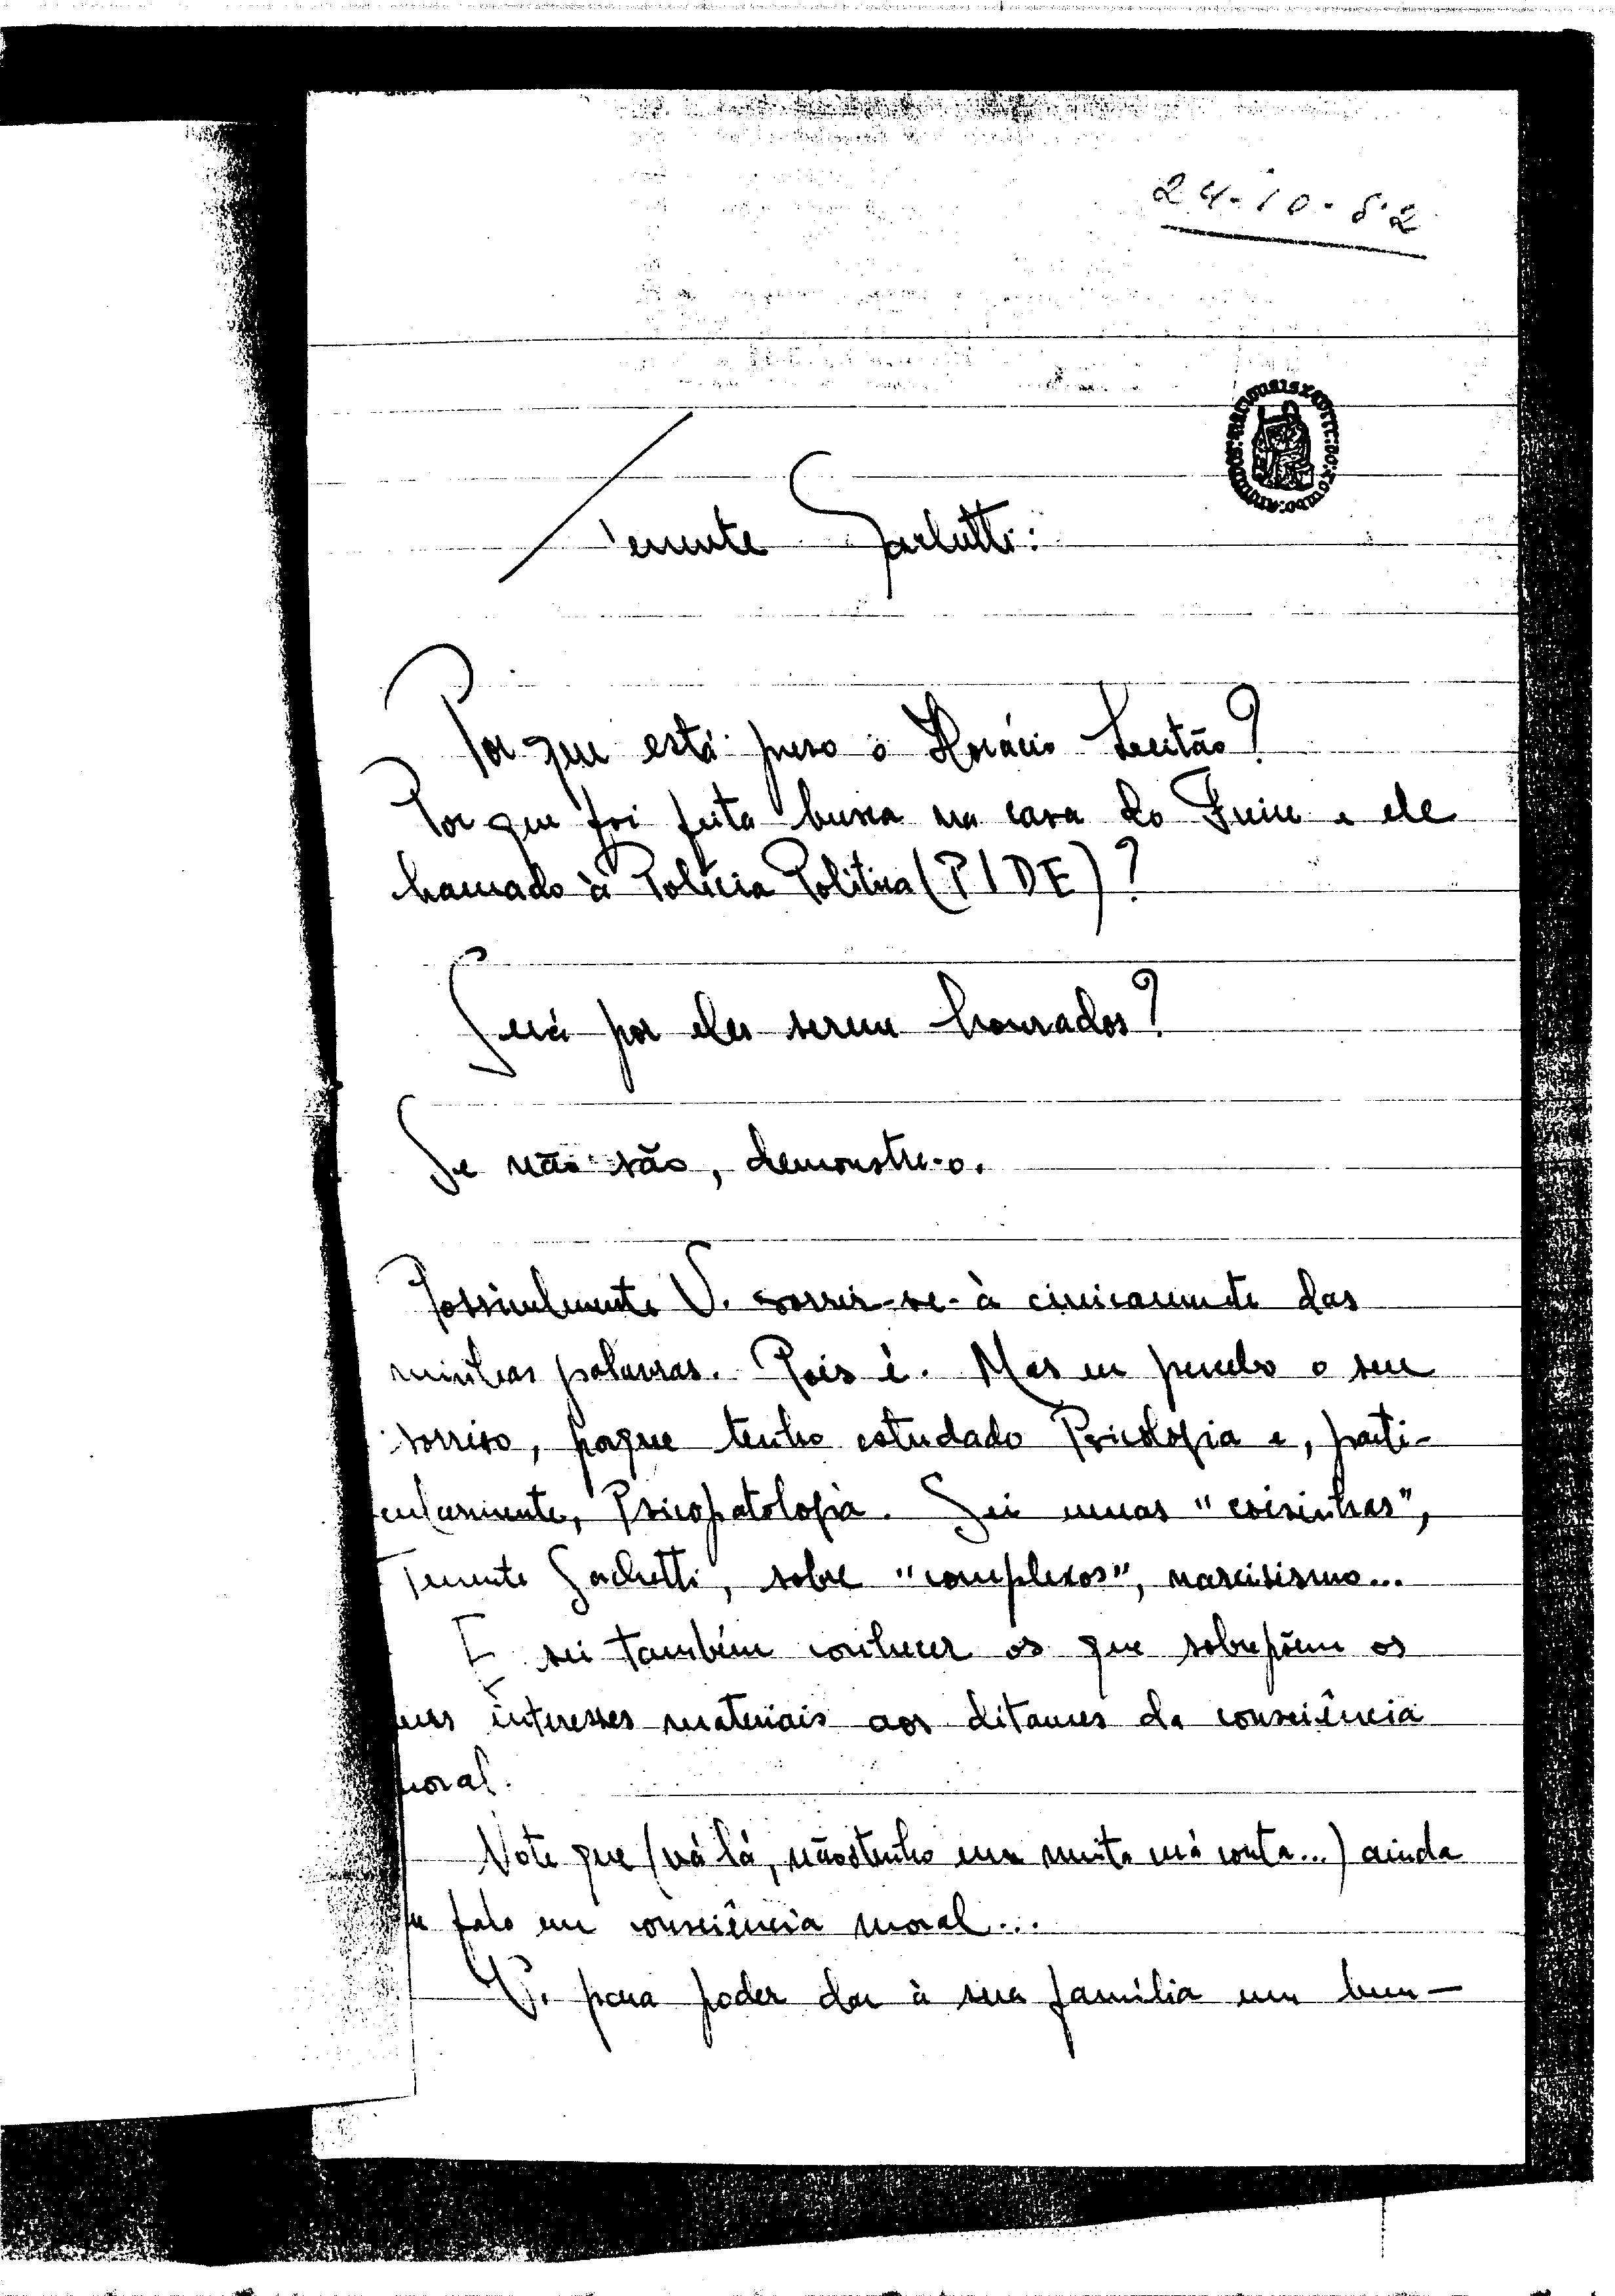 24-10-52
Tenente Sachetti:
Por que está preso o Horácio Leitão?
Por que foi feita busca na casa do Freire e ele
chamado à Polícia Política (PIDE)?
Será por eles serem honrados?
Se não são, demonstre-o.
Possivelmente V. sorrir-se-à cinicamente das
minhas palavras. Pois é. Mas eu perdoo o seu
sorriso, porque tenho estudado Psicologia e, parti-
cularmente, Psicopatologia. Sei umas "coisinhas",
Tenente Sachetti, sobre "complexos", narcisismo...
E sei também conhecer os que sobrepõem os
seus interesses materiais aos ditames da consciência
moral.
Note que (vá lá, não o tenho em muita má conta...) ainda
lhe falo em consciência moral...
V. para poder dar à sua família um bem-